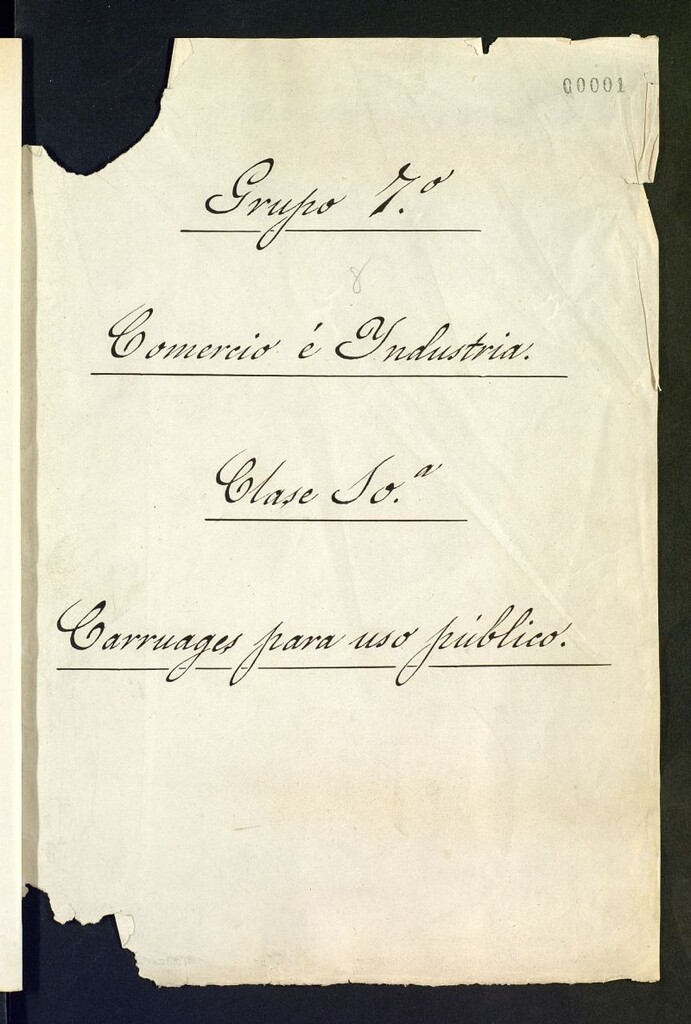 00001
Grupo 7.º
8
Comercio é Industria.
Clase 10.ª
Carruages para uso público.